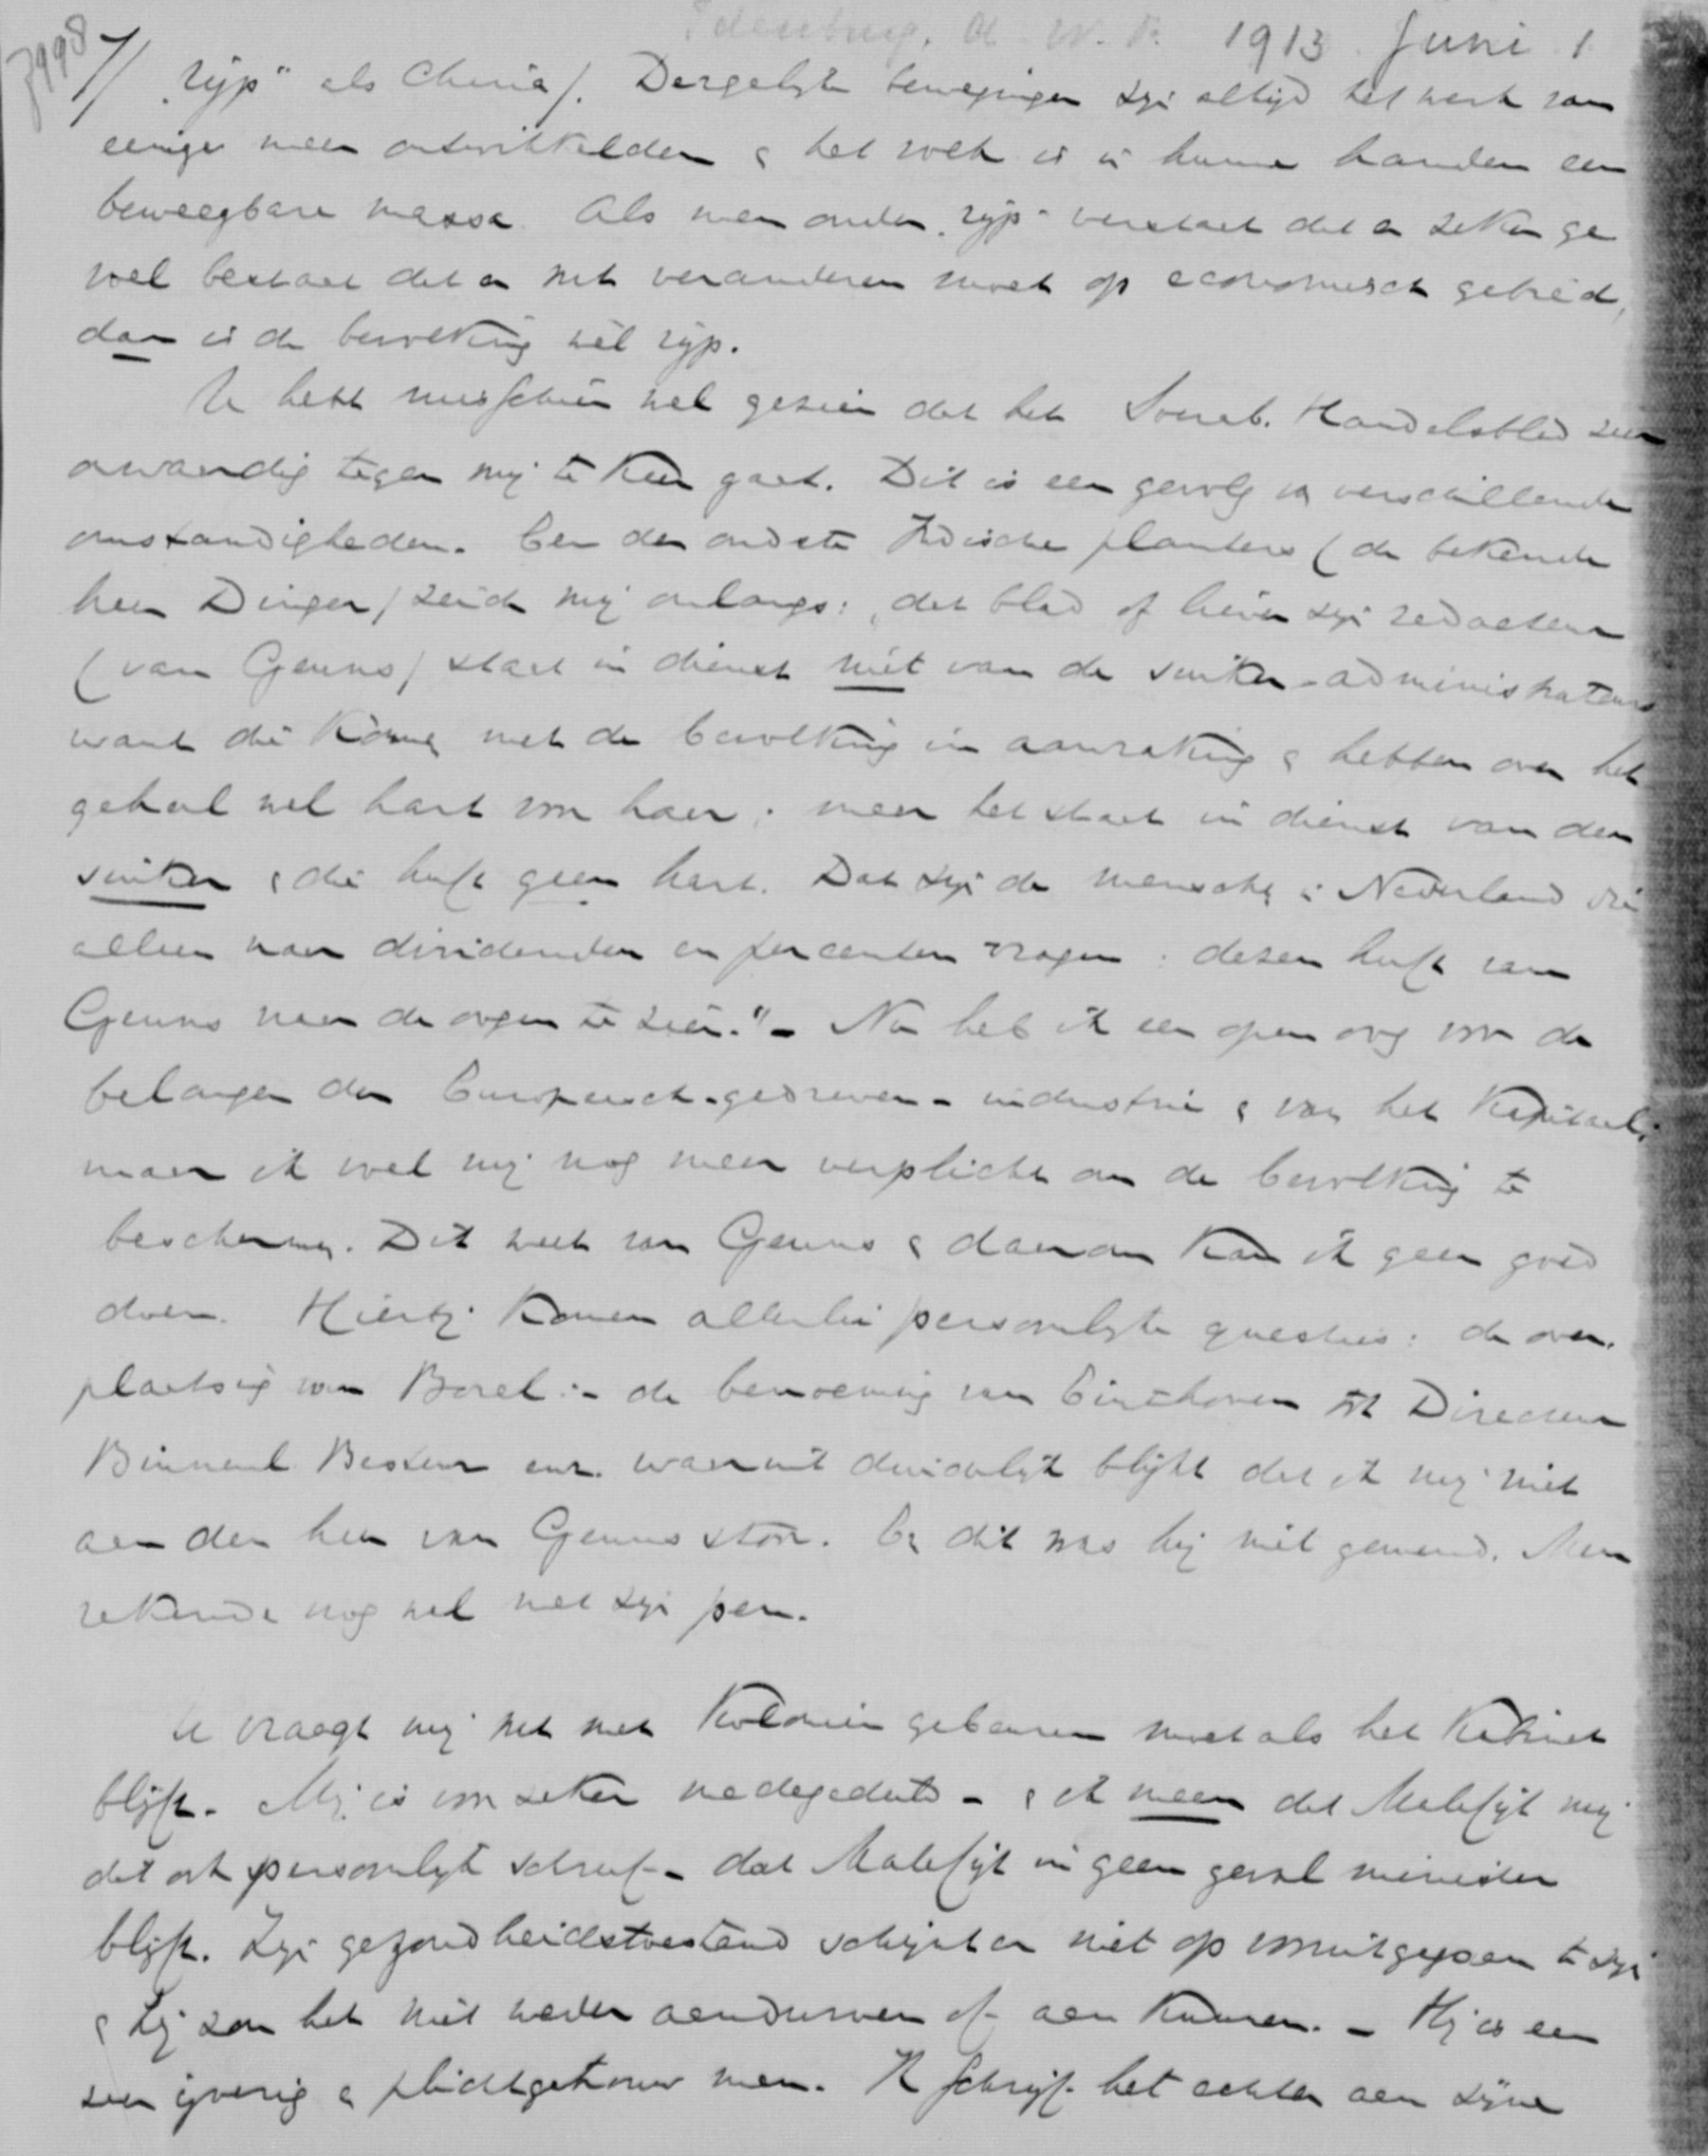 Idenburg, A. W. F. 1913 Juni 1
7998
7/ "rijp" als China/. Dergelijke bewegingen zijn altijd het werk van
eenige meer ontwikkelden & het volk is in hunne handen een
beweegbare massa. Als men onder "rijp" verstaat dat er zeker ge
voel bestaat dat er iets veranderen moet op economisch gebied,
dan is de bevolking wèl rijp.
U hebt misschien wel gezien dat het Soerab. Handelsblad zeer
onwaardig tegen mij te keer gaat. Dit is een gevolg v. verschillende
omstandigheden. Een der oudste Indische planters (de bekende
heer Dinger) zeide mij onlangs: "dat blad of liever zijn redacteur
(van Geuns) staat in dienst niet van de suiker-administrateurs
want die komen met de bevolking in aanraking & hebben over het
geheel wel hart voor haar; maar het staat in dienst van den
suiker & die heeft geen hart. Dat zijn de menschen in Nederland die
alleen naar dividenden en percenten vragen: dezen heeft van
Geuns naar de oogen te zien." - Nu heb ik een open oog voor de
belangen der Europeesch-gedreven-industrie & van het kapitaal;
maar ik voel mij nog meer verplicht om de bevolking te
beschermen. Dit weet van Geuns & daarom kan ik geen goed
doen. Hierbij komen allerlei persoonlijke questies: de over-
plaatsing van Borel:- de benoeming van Einthoven tot Directeur
Binnenl Bestuur enz. waaruit duidelijk blijkt dat ik mij niet
aan den heer van Geuns stoor. En dit was hij niet gewend. Men
rekende nog wel met zijn pen.
U vraagt mij wat met Koloniën gebeuren moet als het Kabinet
blijft. Mij is voor zeker medegedeeld - & ik meen dat Malefijt mij
dit ook persoonlijk schreef - dat Malefijt in geen geval minister
blijft. Zijn gezondheidstoestand schijnt er niet op vooruitgegaan te zijn
& hij zou het niet weder aandurven of aan kunnen. - Hij is een
zeer ijverig & plichtgetrouw man. Ik schrijf het echter aan zijne